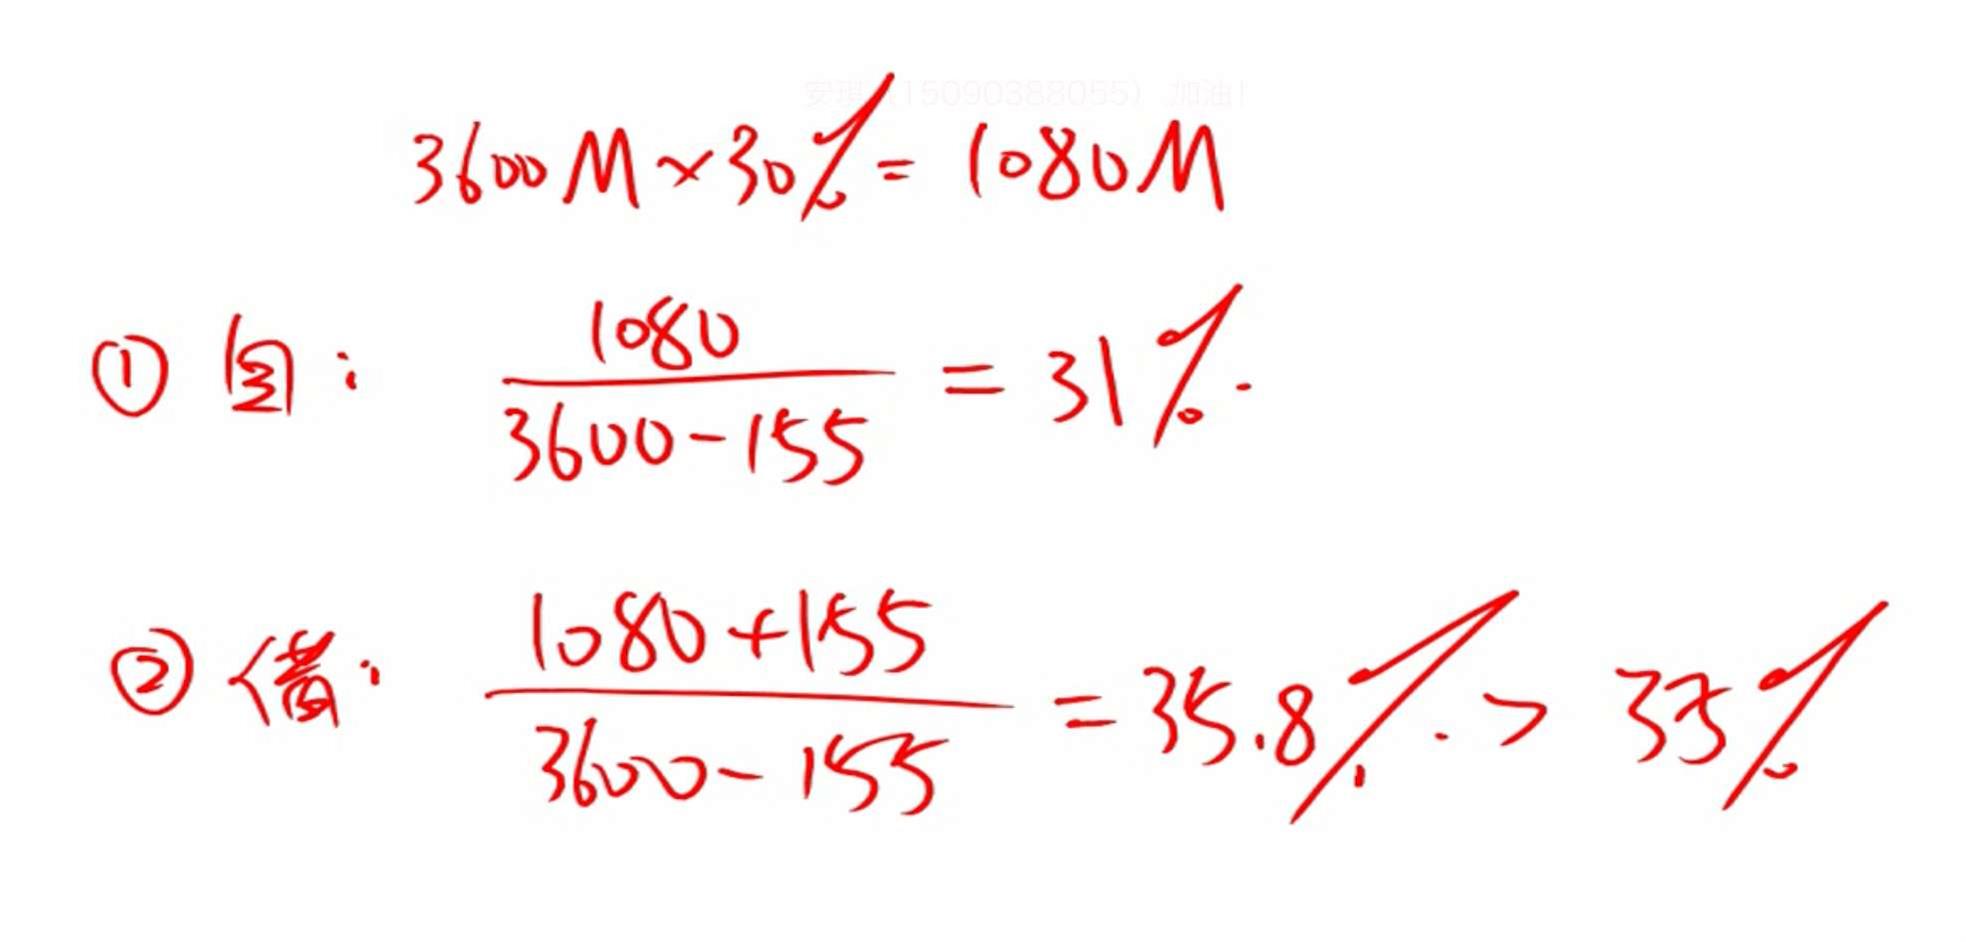 安琪(15090388055) 加油!
3600M×30%= 1080M
① 图: 1080
3600-155
= 31%.
② 債: 1080+155
3600-155
= 35.8%. > 35%